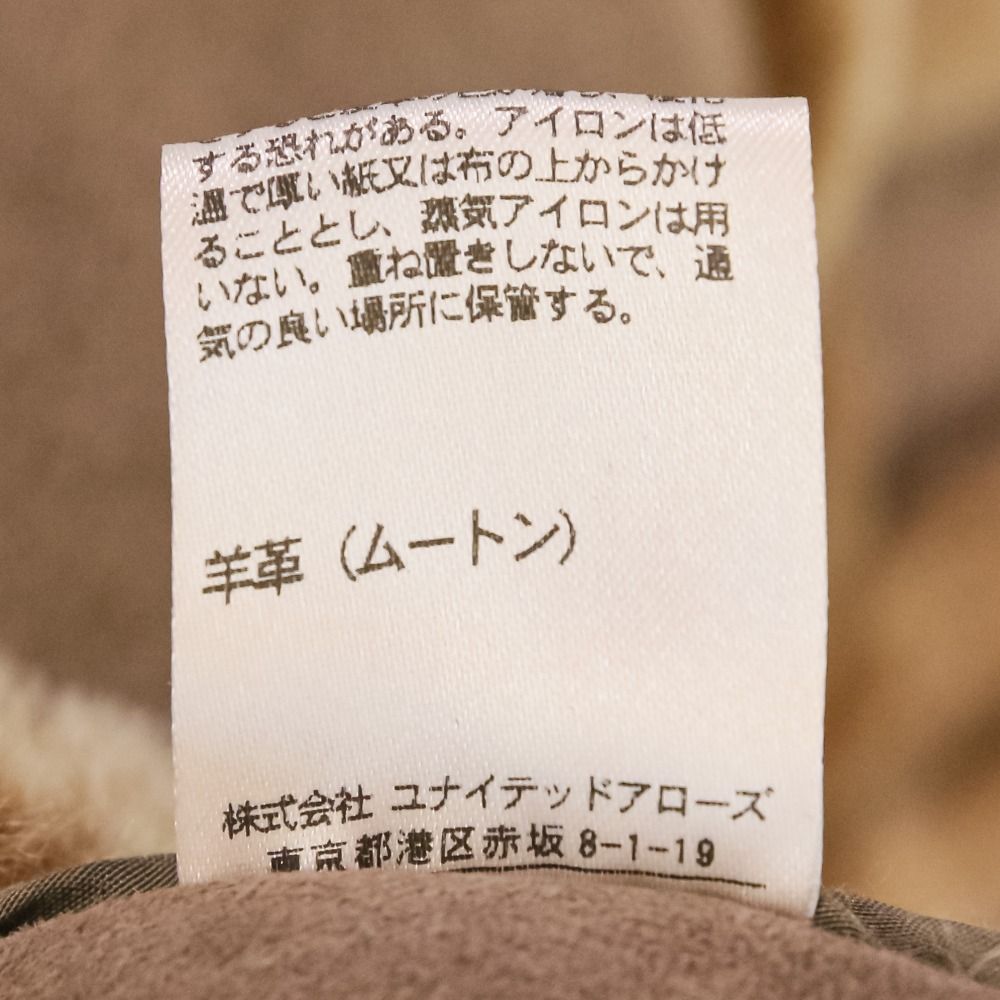 する恐れがある。アイロンは低
温で厚い紙又は布の上からかけ
ることとし、蒸気アイロンは用
いない。重ね置きしないで、通
気の良い場所に保管する。
羊革（ムートン）
株式会社 ユナイテッドアローズ
東京都港区赤坂 8-1-19